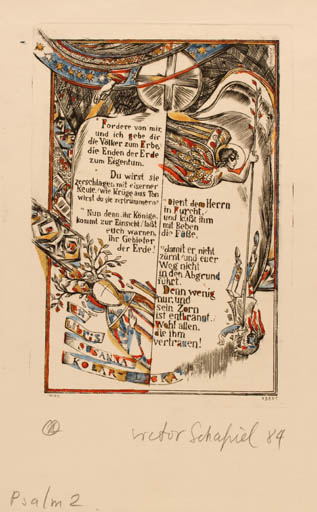 Fordere von mir,
und ich gebe dir
die Völker zum Erbe,
die Enden der Erde
zum Eigentum.
Du wirst sie
zerschlagen mit eiserner
Keule, wie Krüge aus Ton
wirst du sie zertrümmern."
Nun denn, ihr Könige,
kommt zur Einsicht, laßt
euch warnen,
ihr Gebieter
der Erde!
Dient dem Herrn
in Furcht,
und küßt ihm
mit Beben
die Füße,
damit er nicht
zürnt und euer
Weg nicht
in den Abgrund
führt.
Denn wenig
nur, und
sein Zorn
ist entbrannt.
Wohl allen,
die ihm
vertrauen!
EX
LIBRIS
ZUSANNY
KOLARSKA
Victor Schapiel 84
Psalm 2